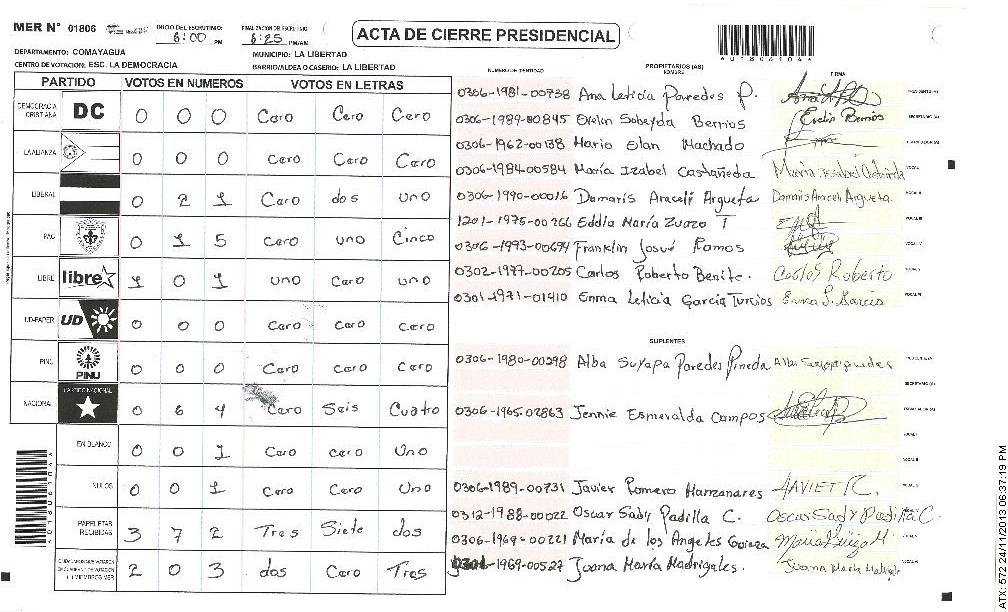 MER Nº 01806
INICIO DEL ESCRUTINIO: 6:00 PM
FINALIZACION DE ESCRUTINIO 6:25 PM/AM
ACTA DE CIERRE PRESIDENCIAL
AU18061044
DEPARTAMENTO: COMAYAGUA
MUNICIPIO: LA LIBERTAD
CENTRO DE VOTACION: ESC. LA DEMOCRACIA
BARRIO/ALDEA O CASERIO: LA LIBERTAD
PARTIDO VOTOS EN NUMEROS VOTOS EN LETRAS
DEMOCRACIA CRISTIANA DC 0 0 0 Cero Cero Cero
LA ALIANZA 0 0 0 Cero Cero Cero
LIBERAL 0 2 1 Cero dos uno
PAC 0 1 5 cero uno Cinco
LIBRE libre 1 0 1 uno Cero uno
UD-FAPER UD 0 0 0 Cero cero cero
PINU PINU 0 0 0 Cero Cero Cero
NACIONAL PARTIDO NACIONAL 0 6 4 Cero Seis Cuatro
EN BLANCO 0 0 1 Cero cero Uno
NULOS 0 0 1 Cero Cero Uno
PAPELETAS RECIBIDAS 3 7 2 Tres Siete dos
2 0 3 dos Cero Tres
NUMERO DE IDENTIDAD PROPIETARIOS (AS) NOMBRE FIRMA
0306-1981-00738 Ana Leticia Paredes P.
0306-1989-00845 Evelin Sobeyda Berrios Evelin Berrios
0306-1962-00138 Mario Elan Machado
0306-1984-00584 María Izabel Castañeda
0306-1990-00016 Damaris Araceli Argueta Damaris Araceli Argueta
1201-1975-00266 Eddla María Zuazo T
0306-1993-00674 Franklin Josué Ramos
0302-1977-00205 Carlos Roberto Benite. Carlos Roberto
0301-1971-01410 Enma Leticia García Turcios Enma L. Garcia
SUPLENTES
0306-1980-00298 Alba Suyapa Paredes Pineda
0306-1965-02863 Jennie Esmeralda Campos
0306-1989-00731 Javier Romero Manzanares JAVIET R.
0312-1988-00022 Oscar Sady Padilla C. Oscar Sady Padilla C.
0306-1969-00221 María de los Angeles
0301-1969-00527 Juana María Madrigales.
ATX: 572 24/11/2013 06:37:19 PM